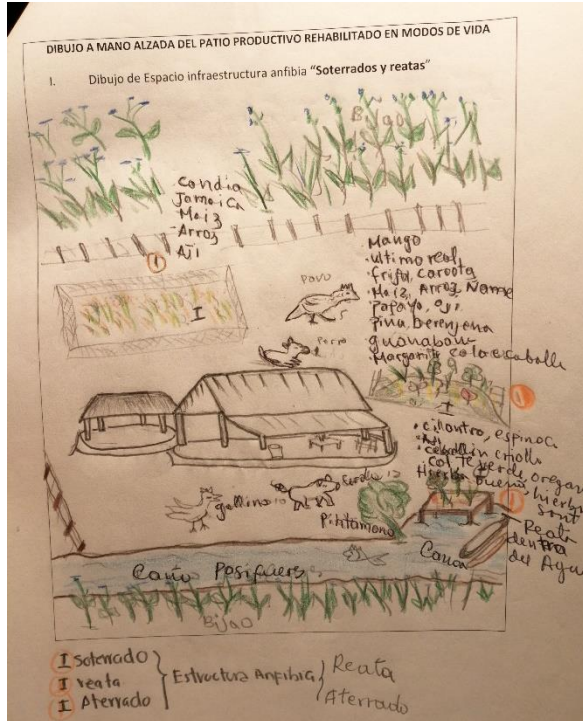 DIBUJO A MANO ALZADA DEL PATIO PRODUCTIVO REHABILITADO EN MODOS DE VIDA
I. Dibujo de Espacio infraestructura anfibia "Soterrados y reatas"
Bijao
Candia
Jamaica
Maiz
Arroz
Ají
I
I
Pavo
Perro
Mango
ultimo real
frijol, caraota
Maiz, Arroz, Ñame
Papaya, aji
Piña, berenjena
guanabana
Margarita cola e caballo
I
I
cilantro, espinaca
Aji
cebollin criollo
Col te verde, oregano
Hierba buena, hierba
Santa
I
Reata
dentro
del Agua
gallina 10
Cerdo 12
Pintamono
Canoa
Caño Posigueres
Bijao
I Soterrado
I reata
I Aterrado
Estructura Anfibia
Reata
Aterrado